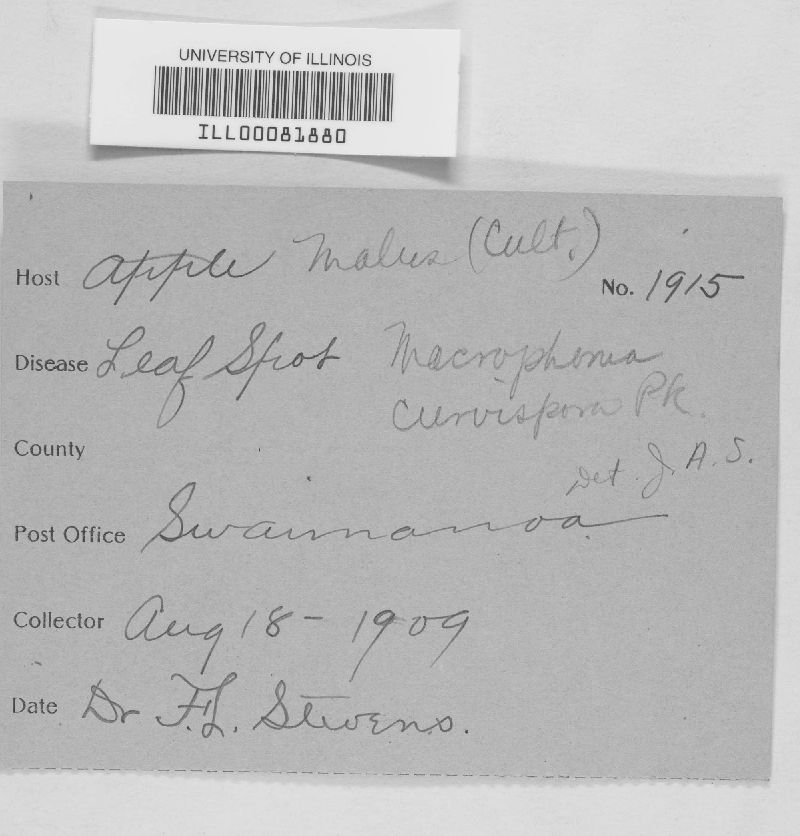 UNIVERSITY OF ILLINOIS
ILL00081880
Host Apple Malus (Cult.)
No. 1915
Disease Leaf Spot Macrophoma
curvispora Pk.
County
Det. J. A. S.
Post Office Swannanoa
Collector Aug 18 - 1909
Date Dr F. L. Stevens.